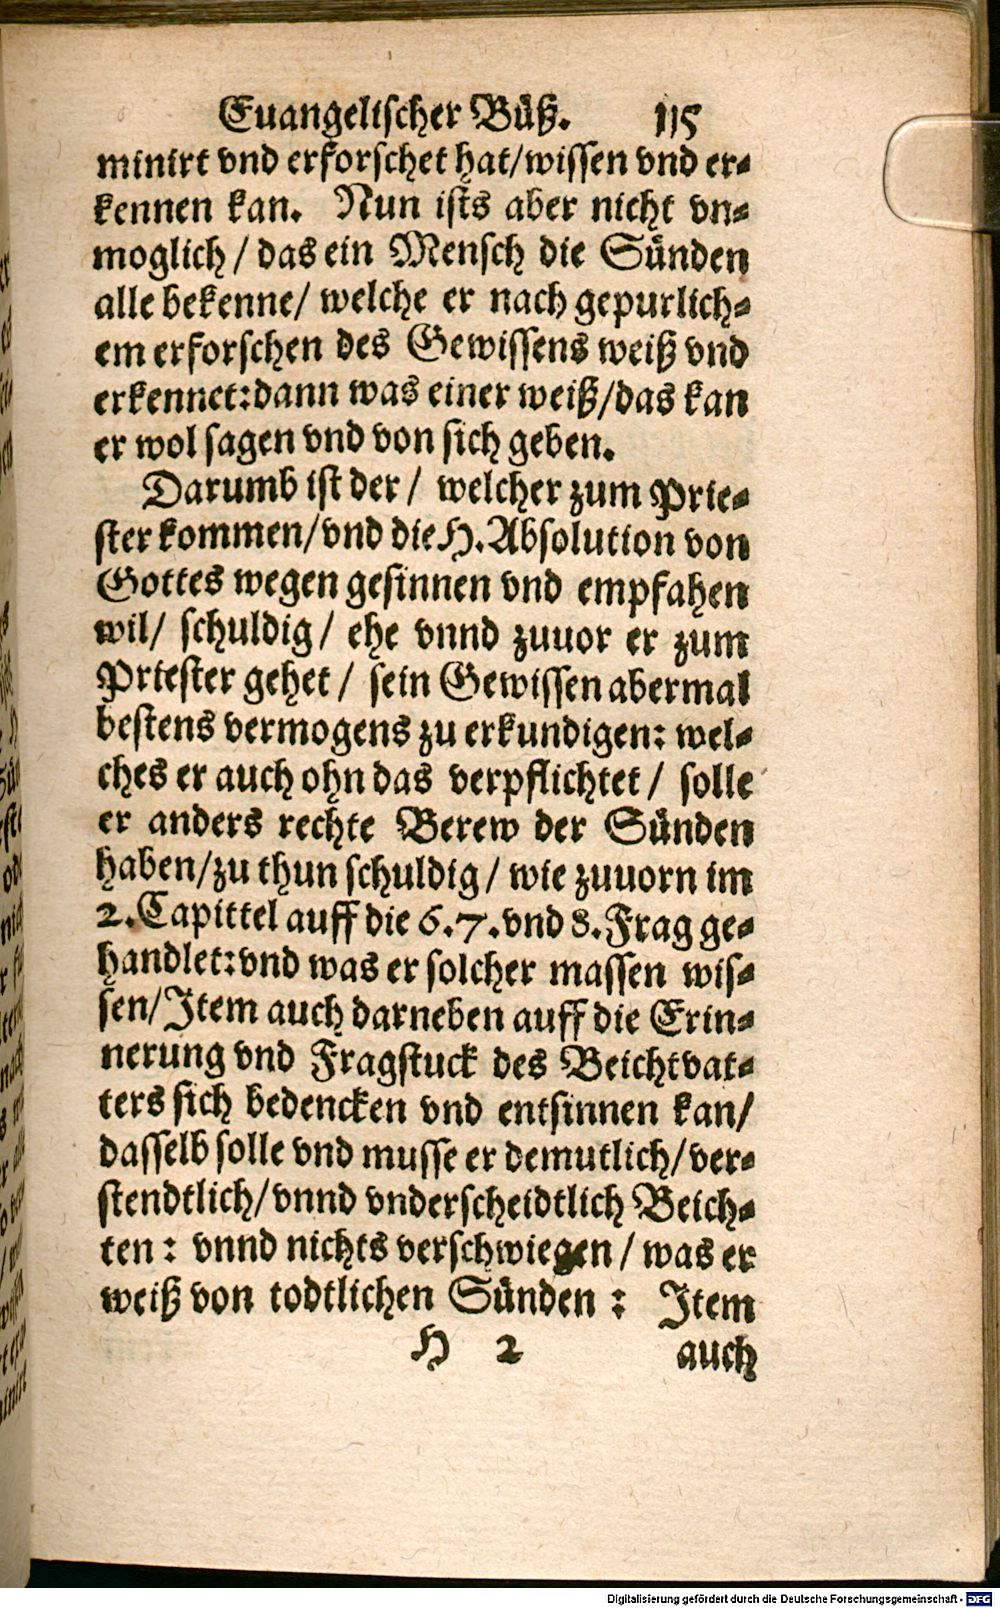 Euangelischer Büß. 115
minirt vnd erforschet hat/wissen vnd er-
kennen kan. Nun ists aber nicht vn-
moglich / das ein Mensch die Sünden
alle bekenne/ welche er nach gepurlich-
em erforschen des Gewissens weiß vnd
erkennet:dann was einer weiß/das kan
er wol sagen vnd von sich geben.
Darumb ist der / welcher zum Prie-
ster kommen/vnd die H. Absolution von
Gottes wegen gesinnen vnd empfahen
wil/ schuldig/ ehe vnnd zuuor er zum
Priester gehet / sein Gewissen abermal
bestens vermogens zu erkundigen: wel-
ches er auch ohn das verpflichtet / solle
er anders rechte Berew der Sünden
haben/zu thun schuldig / wie zuuorn im
2. Capittel auff die 6. 7. vnd 8. Frag ge-
handlet:vnd was er solcher massen wis-
sen/Item auch darneben auff die Erin-
nerung vnd Fragstuck des Beichtvat-
ters sich bedencken vnd entsinnen kan/
dasselb solle vnd musse er demutlich/ver-
stendtlich/vnnd vnderscheidtlich Beich-
ten : vnnd nichts verschwiegen / was er
weiß von todtlichen Sünden : Item
H 2 auch
Digitalisierung gefördert durch die Deutsche Forschungsgemeinschaft - DFG